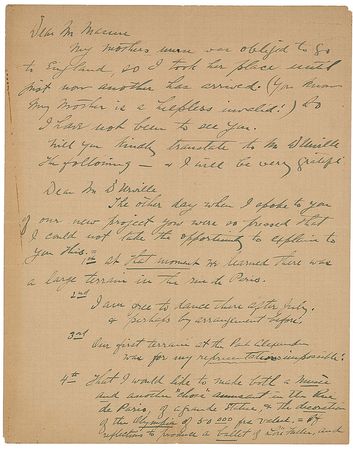 Dear Mr
My mothers nurse was obliged to go
to England, so I took her place until
just now another has arrived. (You know
My Mother is a helpless invalid!) So
I have not been to see you.
Will you kindly translate to Mr D'Urville
the following — & I will be very grateful
Dear Mr D'Urville
The other day when I spoke to you
of our new project you were so pressed that
I could not take the opportunity to explain to
you this. =
1st at that moment we learned there was
a large terrain in the rue de Paris.
2nd
I am free to dance there after July.
& perhaps by arrangement before.
3rd
Our first terrain at the
was for my representations impossible.
4th That I would like to make both a Musée
and another "chose amusant in the Rue
de Paris, of a grande Stature, & the decoration
of the Olympia of 50.000 frs value, =
to produce a ballet of Loie Fuller, and